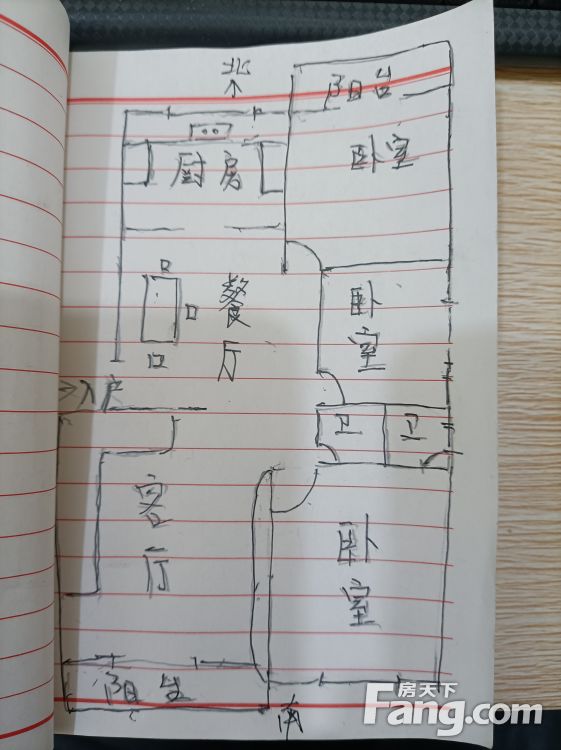 北
阳台
卧室
厨房
餐厅
卧室
入户
卫
卫
客厅
卧室
阳台
南
房天下
Fang.com